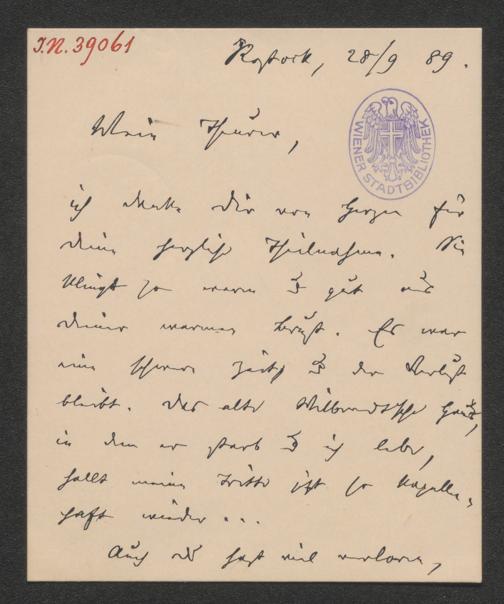 I.N. 39061
Rostock, 28/9 89.
WIENER STADTBIBLIOTHEK
Mein Theurer,
ich danke Dir von Herzen für
deine herzliche Theilnahme. Sie
klingt so warm u gut aus
deiner warmen Brust. Es war
eine schwere Zeit, u der Verlust
bleibt. Das alte Wilbrandtsche Haus,
in dem er starb u ich lebe,
hallt meine Tritte jetzt so kapellen-
haft wieder ...
Auch Du hast viel verloren,